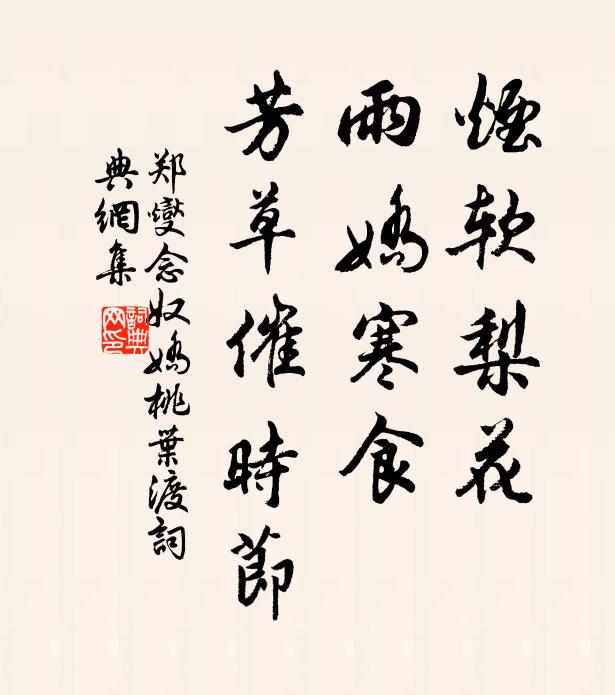 煙软梨花
雨嬌寒食
芳草催時節
郑燮念奴嬌桃葉渡詞
典網集
詞典网印